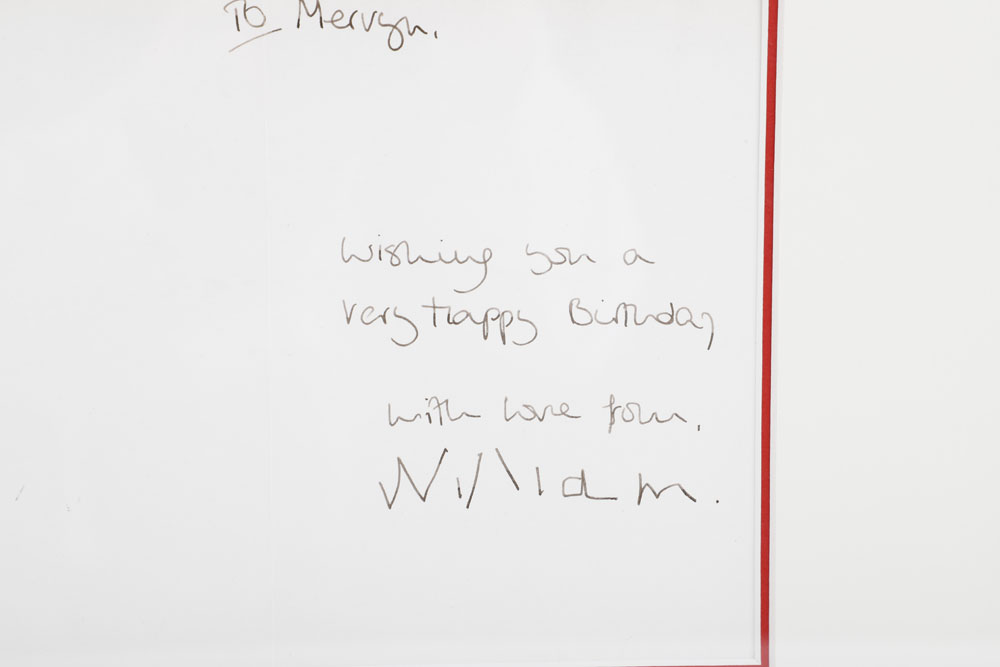 To Mervyn.
wishing you a
very Happy Birthday
with love from.
William.